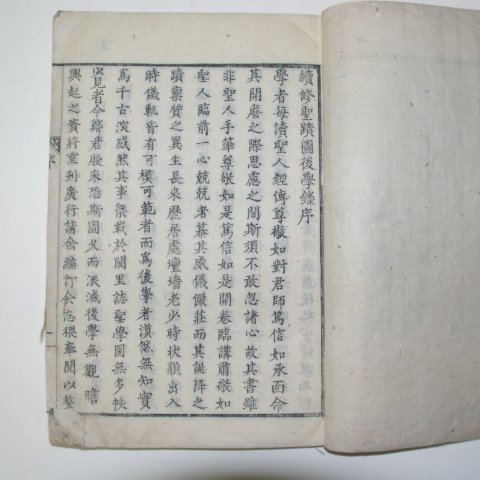 續修聖蹟圖後學錄序
學者每讀聖人經傳尊敬如對君師篤信如承面命
其開廢之際思慮之間斯須不敢忽諸心故其書雖
非聖人手筆尊敬如是篤信如是開卷臨講肅敬如
聖人臨前一心兢兢者慕其威儀儼莊而其誕降之
蹟稟質之異生長來歷居處壇墻老少時狀貌出入
時儀軌皆有可模可範者而爲後學者漠然無知實
爲千古演感然其事槩載於闕里誌聖學圖無多帙
覽者今鄒君殷采恐斯圖久而泯滅後學無觀瞻
興起之資將重刊廣行請余編訂余忘猥奉閱以整